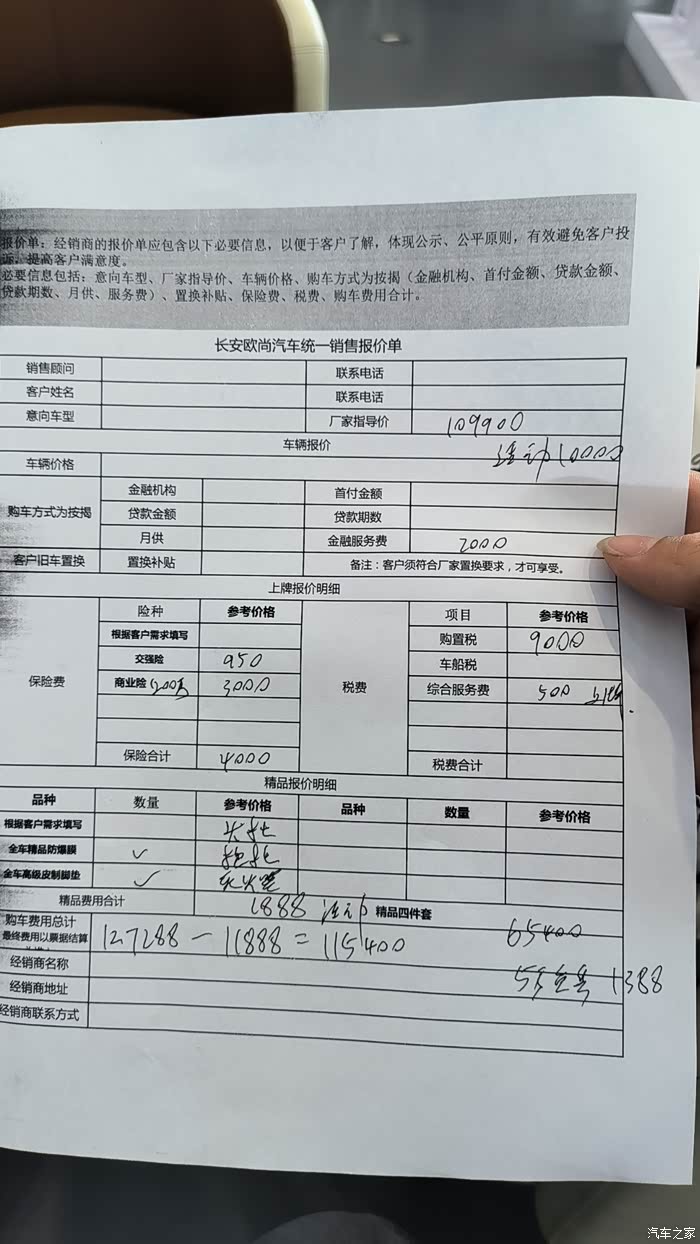 报价单：经销商的报价单应包含以下必要信息，以便于客户了解，体现公示、公平原则，有效避免客户投
诉，提高客户满意度。
必要信息包括：意向车型、厂家指导价、车辆价格、购车方式为按揭（金融机构、首付金额、贷款金额、
贷款期数、月供、服务费）、置换补贴、保险费、税费、购车费用合计。
长安欧尚汽车统一销售报价单
销售顾问 联系电话
客户姓名 联系电话
意向车型 厂家指导价 109900
车辆报价
车辆价格 活动10000
购车方式为按揭 金融机构 首付金额
贷款金额 贷款期数
月供 金融服务费 2000
客户旧车置换 置换补贴 备注：客户须符合厂家置换要求，才可享受。
上牌报价明细
保险费 险种 参考价格 税费 项目 参考价格
根据客户需求填写 购置税 9000
交强险 950 车船税
商业险（200万 3000 综合服务费 500 上牌
保险合计 4000 税费合计
精品报价明细
品种 数量 参考价格 品种 数量 参考价格
根据客户需求填写
全车精品防爆膜 ✓
全车高级皮制脚垫 ✓ 灭火器
精品费用合计 1888 活动 精品四件套
购车费用总计 127288－11888＝115400 65400
最终费用以票据结算
经销商名称
经销商地址 1388
经销商联系方式
汽车之家